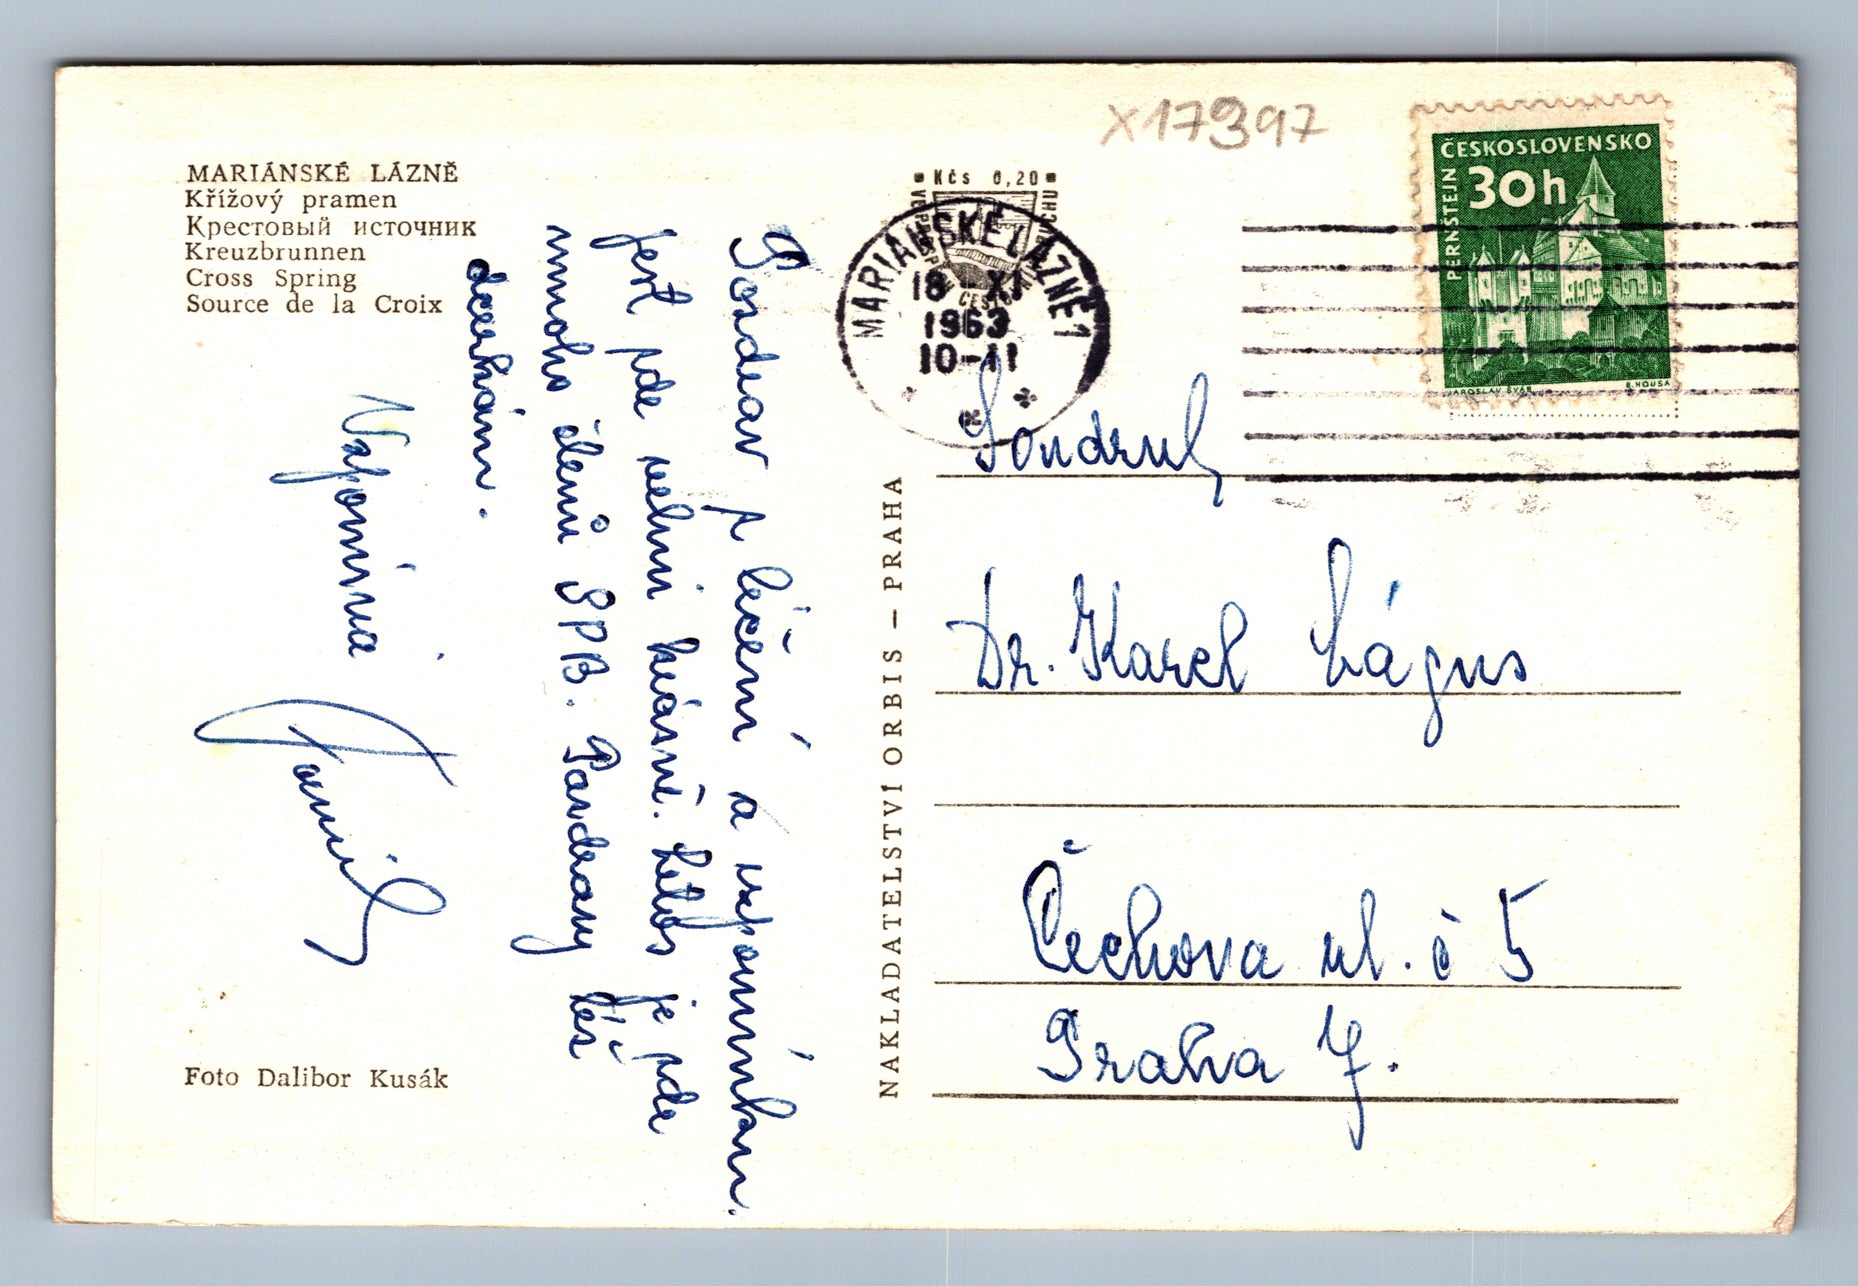 X17397
MARIÁNSKÉ LÁZNĚ
Křížový pramen
Крестовый источник
Kreuzbrunnen
Cross Spring
Source de la Croix
Pozdrav z léčení a vzpomínkou.
Jest zde velmi krásně. Letos je zde
mnoho členů SPB. Pozdravy též
douškám.
Vzpomíná
Foto Dalibor Kusák
NAKLADATELSTVÍ ORBIS – PRAHA
Kčs 0,20
MARIÁNSKÉ LÁZNĚ 1
18 XI
1963
10-11
ČESKOSLOVENSKO
30h
PERNŠTEJN
JAROSLAV ŠVÁB
B. HOUSA
Soudruh
Dr. Karel Lágus
Čechova ul. č 5
Praha 7.